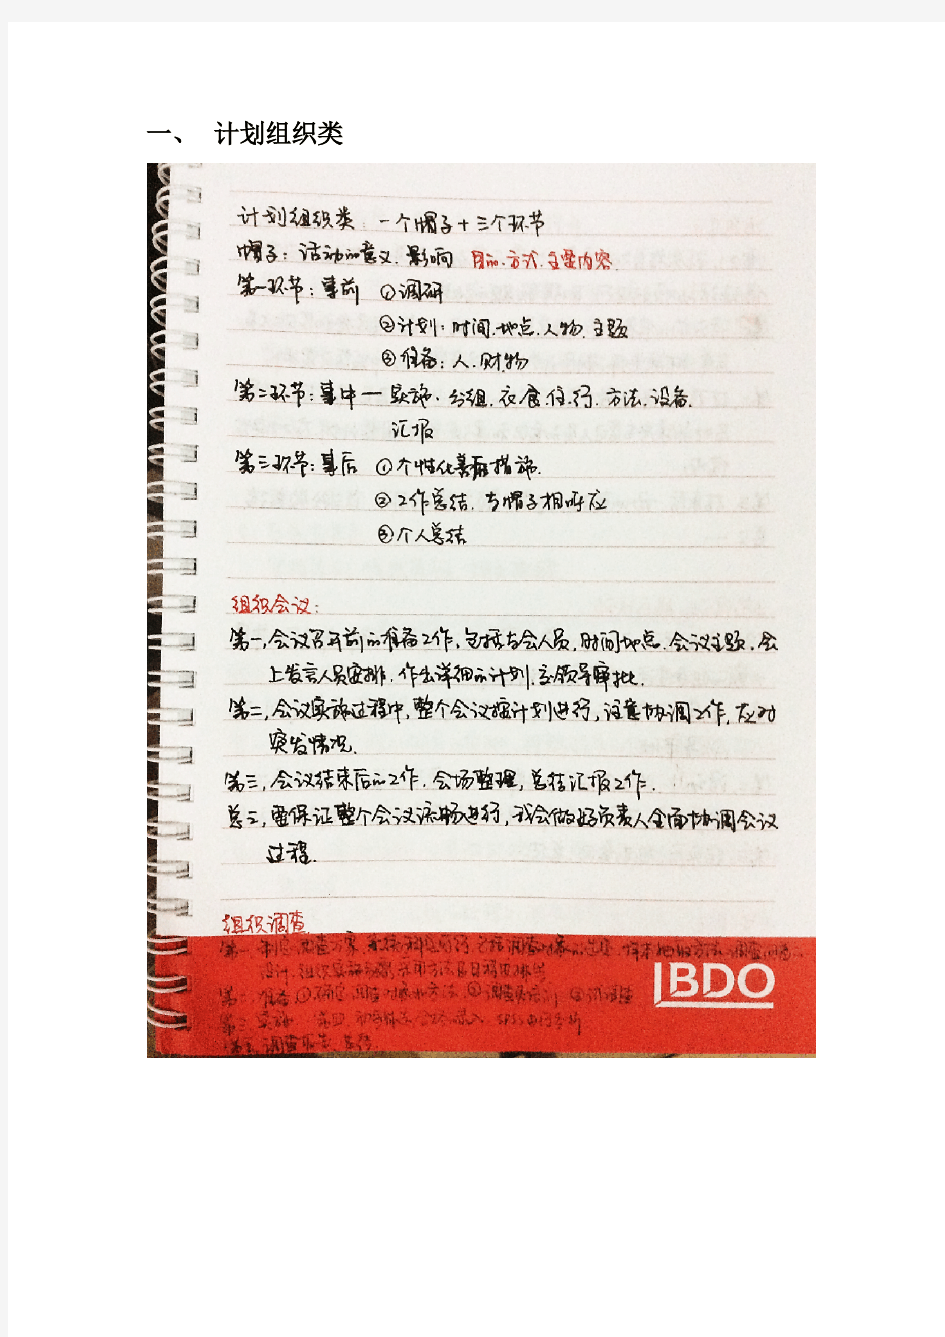 一、 计划组织类
计划组织类：一个帽子+三个环节
帽子：活动的意义.影响 目的.方式.主要内容.
第一环节：事前 ①调研
②计划：时间.地点.人物.主题
③准备：人.财.物
第二环节：事中一实施.分组.衣食住行.方法.设备.
汇报
第三环节：事后 ①个性化善后措施.
②工作总结.与帽子相呼应
③个人总结
组织会议：
第一,会议召开前的准备工作,包括与会人员,时间地点.会议主题.会
上发言人员安排.作出详细的计划.交领导审批.
第二,会议实施过程中,整个会议按计划进行,注意协调工作,应对
突发情况.
第三,会议结束后的工作.会场整理,总结汇报工作.
总之,要保证整个会议流畅进行,我会做好负责人全面协调会议
过程.
组织调查
第一 制定调查方案 包括调查对象的选定 样本抽取方法 调查问卷
设计.组织实施
第二.准备 ①确定调查对象和方法 ②调查员培训 ③试调查
第三 实施 录入 SPSS进行分析
调查报告 总结
BDO